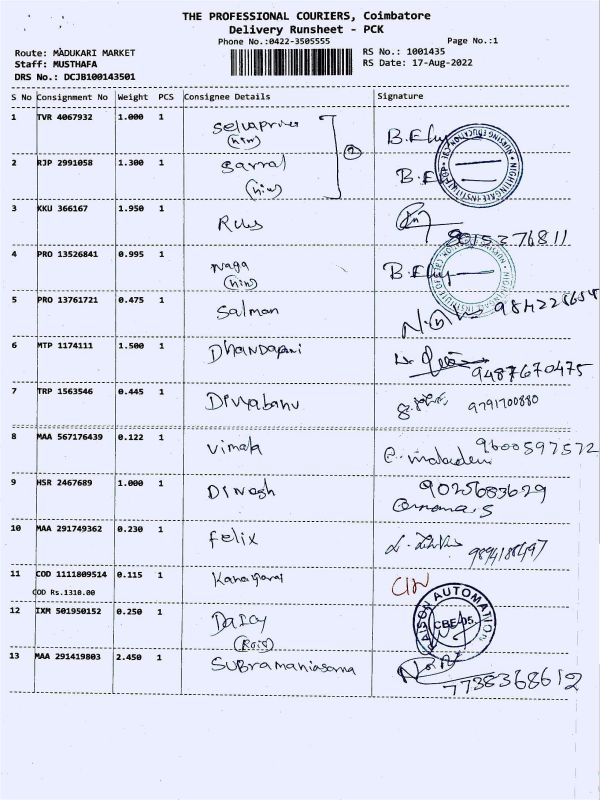 THE PROFESSIONAL COURIERS, Coimbatore
Delivery Runsheet - PCK
Phone No.:0422-3505555 Page No.:1
Route: MADUKARI MARKET RS No.: 1001435
Staff: MUSTHAFA RS Date: 17-Aug-2022
DRS No.: DCJB100143501
S No Consignment No Weight PCS Consignee Details Signature
1 TVR 4067932 1.000 1 Selvapriya
(nin) 2
2 RJP 2991058 1.300 1
(nin)
3 KKU 366167 1.950 1
8015376811
4 PRO 13526841 0.995 1 Naga
(nin)
5 PRO 13761721 0.475 1 Salman
6 MTP 1174111 1.500 1 Dhandapani
9487670475
7 TRP 1563546 0.445 1 Divyabanu 9791700880
8 MAA 567176439 0.122 1 Vimala 9600597572
9 HSR 2467689 1.000 1 Dinesh 9025683629
10 MAA 291749362 0.230 1 Felix
11 COD 1111809514 0.115 1 Kanagaraj
COD Rs.1310.00
12 IXM 501950152 0.250 1 Daisy
13 MAA 291419803 2.450 1 Subramaniasarma
7738368612
NIGHTINGALE INSTITUTE OF NURSING EDUCATION
AUTOMATION
CBE-05.